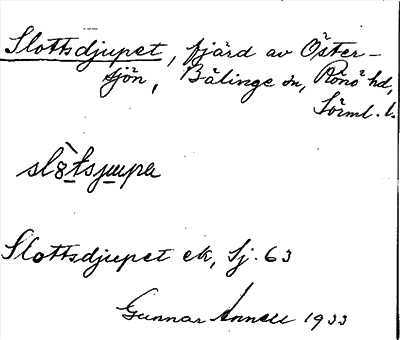 Slottsdjupet, fjärd av Öster-
sjön, Bälinge sn, Rönö hd,
Sörml. l.
slåtsjupa
Slottsdjupet ek, Sj. 63
Gunnar Annell 1933